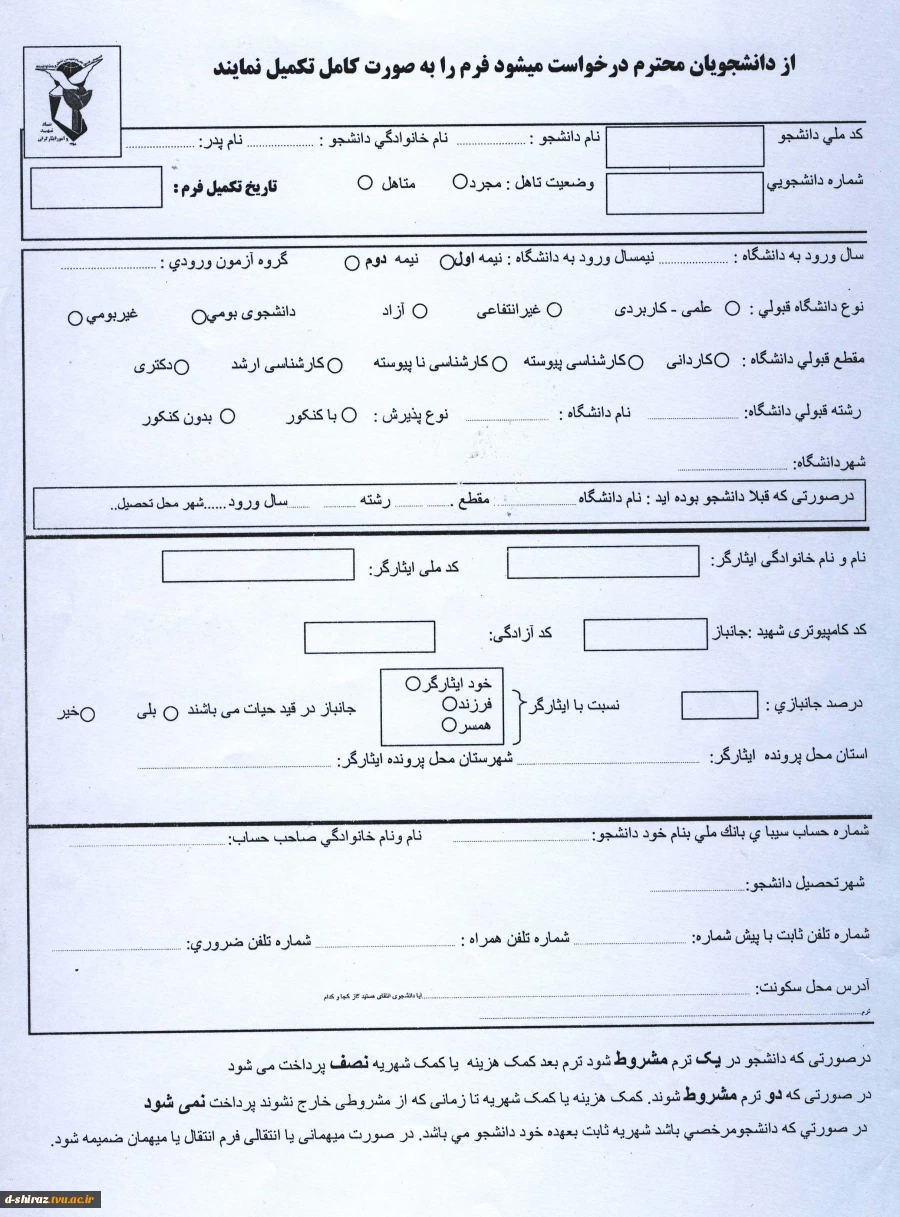 از دانشجویان محترم درخواست میشود فرم را به صورت کامل تکمیل نمایند
بنیاد
شهید
و امور ایثارگران
کد ملي دانشجو نام دانشجو : نام خانوادگي دانشجو : نام پدر:
شماره دانشجويي وضعیت تاهل : مجرد متاهل تاریخ تکمیل فرم :
سال ورود به دانشگاه : نیمسال ورود به دانشگاه : نیمه اول نیمه دوم گروه آزمون ورودي :
نوع دانشگاه قبولي : علمی - کاربردی غیرانتفاعی آزاد دانشجوی بومي غیربومي
مقطع قبولي دانشگاه : کاردانی کارشناسی پیوسته کارشناسی نا پیوسته کارشناسی ارشد دکتری
رشته قبولي دانشگاه: نام دانشگاه : نوع پذیرش : با کنکور بدون کنکور
شهردانشگاه:
درصورتی که قبلا دانشجو بوده اید : نام دانشگاه مقطع . رشته سال ورود ......شهر محل تحصیل..
نام و نام خانوادگی ایثارگر: کد ملی ایثارگر:
کد کامپیوتری شهید :جانباز کد آزادگی:
درصد جانبازي : نسبت با ایثارگر خود ایثارگر فرزند همسر جانباز در قید حیات می باشند بلی خیر
استان محل پرونده ایثارگر: شهرستان محل پرونده ایثارگر:
شماره حساب سیبا ي بانك ملي بنام خود دانشجو: نام ونام خانوادگي صاحب حساب:
شهرتحصیل دانشجو:
شماره تلفن ثابت با پیش شماره: شماره تلفن همراه : شماره تلفن ضروري:
آدرس محل سکونت: آیا دانشجوی انتقالی هستید ؟از کجا و کدام
ترم
درصورتی که دانشجو در یک ترم مشروط شود ترم بعد کمک هزینه یا کمک شهریه نصف پرداخت می شود
در صورتی که دو ترم مشروط شوند. کمک هزینه یا کمک شهریه تا زمانی که از مشروطی خارج نشوند پرداخت نمی شود
در صورتي که دانشجومرخصي باشد شهریه ثابت بعهده خود دانشجو مي باشد. در صورت میهمانی یا انتقالی فرم انتقال یا میهمان ضمیمه شود.
d-shiraz.tvu.ac.ir